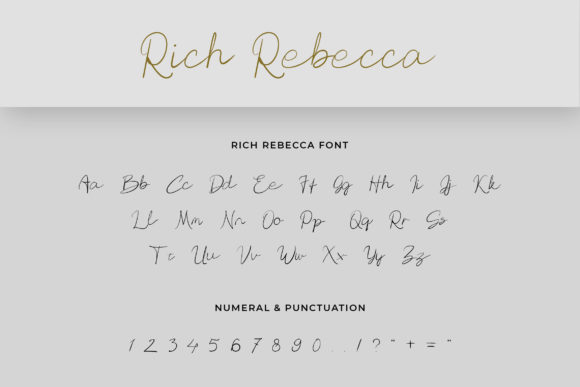 Rich Rebecca
RICH REBECCA FONT
Aa Bb Cc Dd Ee Ff Gg Hh Ii Jj Kk
Ll Mm Nn Oo Pp Qq Rr Ss
Tt Uu Vv Ww Xx Yy Zz
NUMERAL & PUNCTUATION
1 2 3 4 5 6 7 8 9 0 . . / ? " + = "